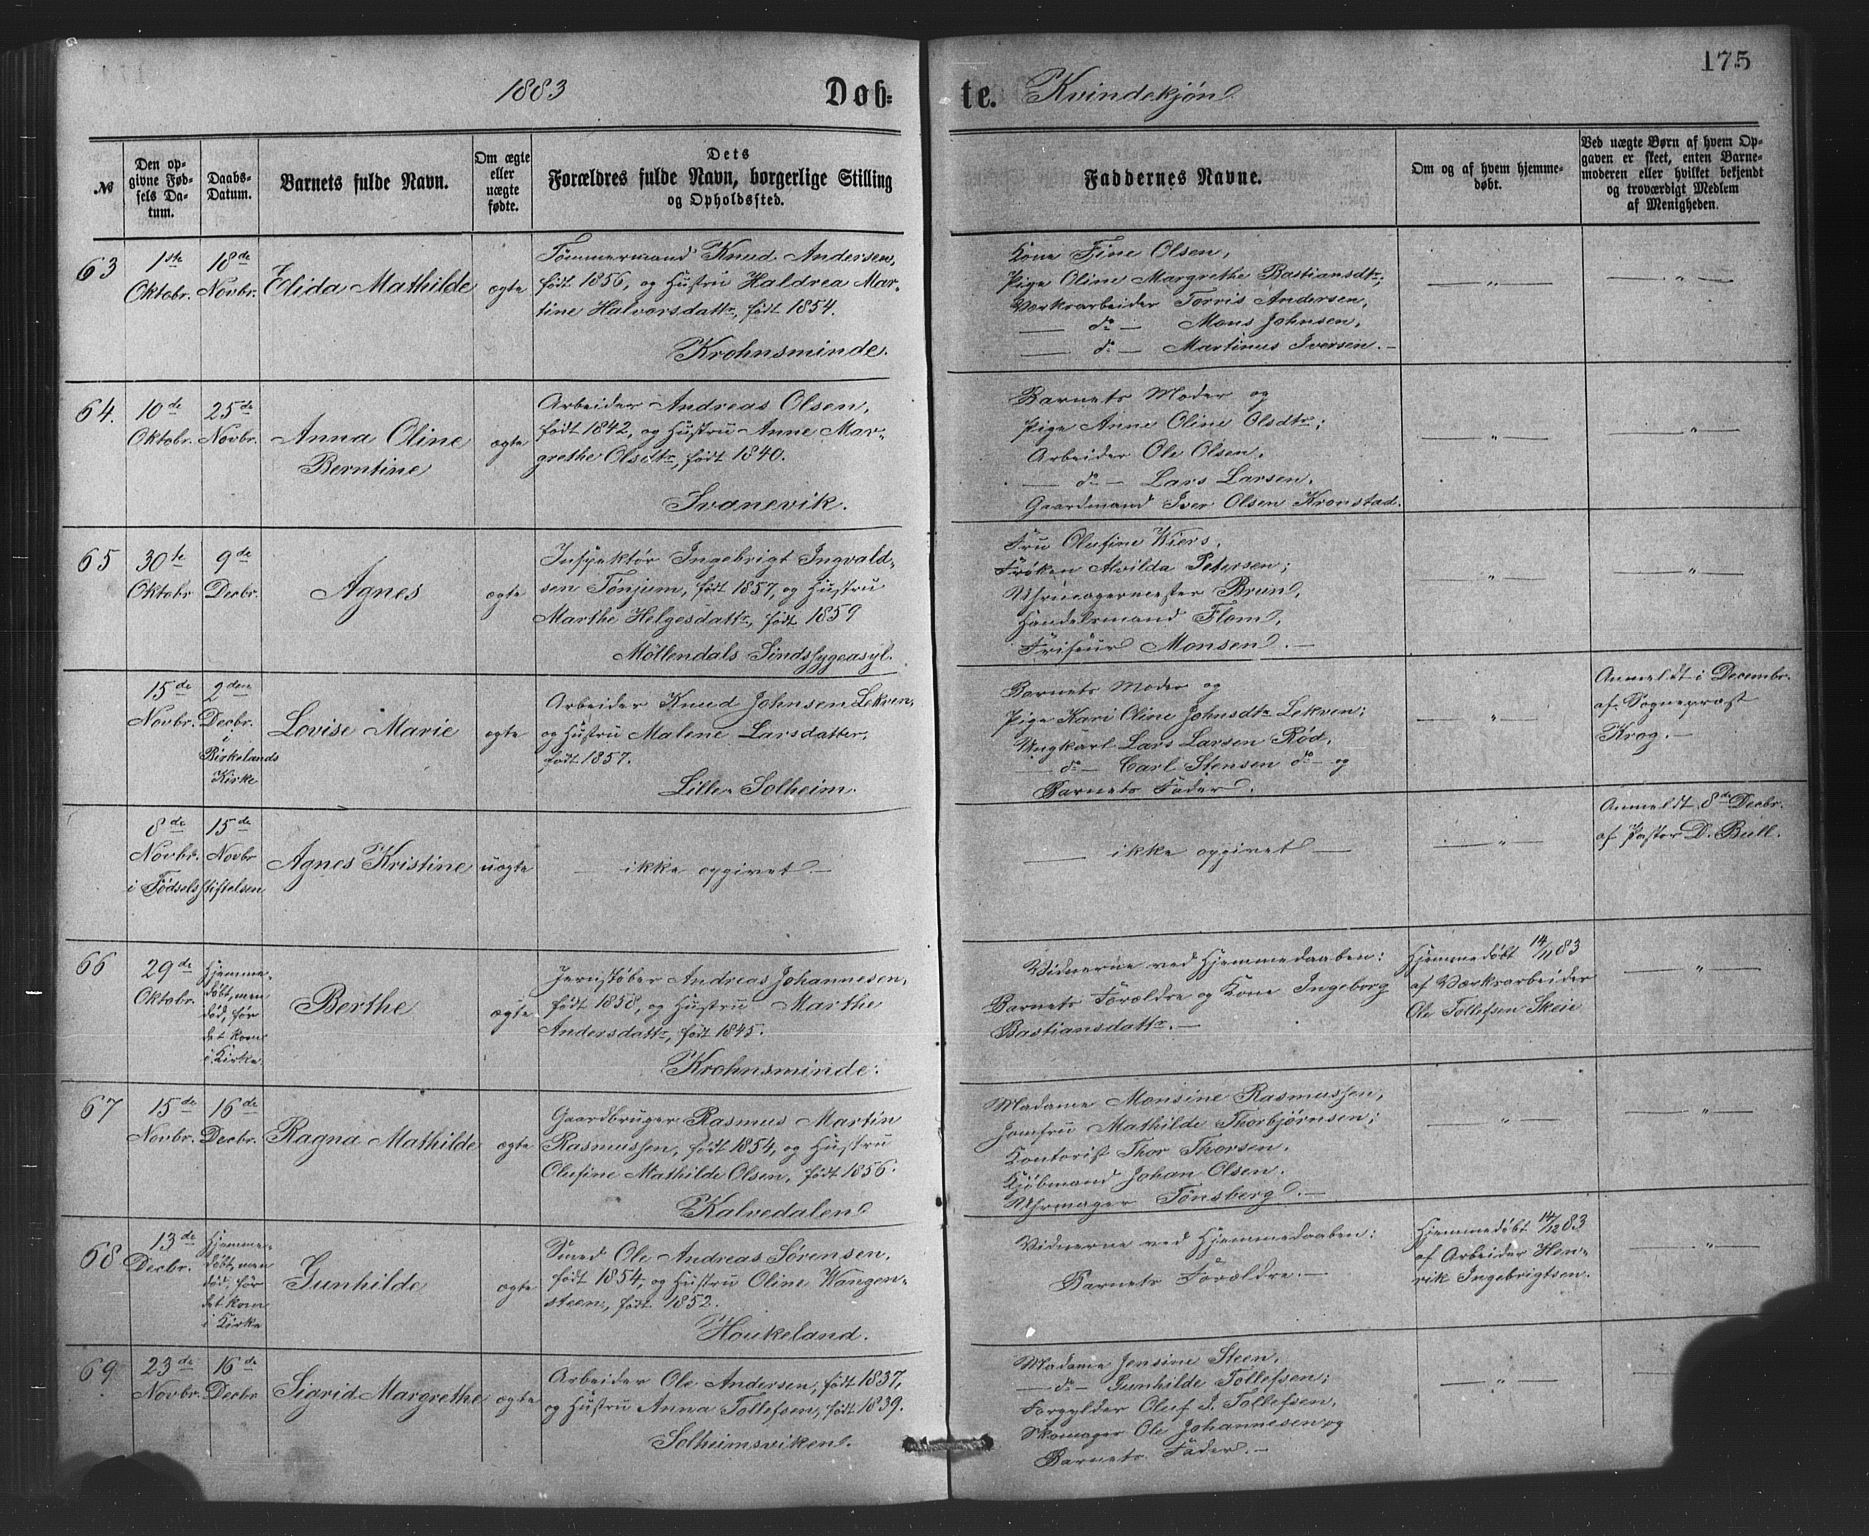 175
1883 Døb- te. Kvindekjøn
№
Den op-
givne Fød-
sels Da-
tum.
Daabs-
Datum.
Barnets fulde Navn.
Om ægte
eller
uægte
fødte.
Dets
Forældres fulde Navn, borgerlige Stilling
og Opholdssted.
Faddernes Navne.
Om og af hvem hjemme-
døbt.
Ved uægte Børn af hvem Op-
gaven er skeet, enten Barne-
moderen eller hvilket bekjendt
og troværdigt Medlem
af Menigheden.
63
1ste
Oktobr.
18de
Novbr.
Elida Mathilde
ægte
Tømmermand Knud Andersen,
født 1856, og Hustru Haldrea Mar-
tine Halvorsdattr, født 1854.
Krohnsminde.
Kone Fine Olsen,
Pige Oline Margrethe Bastiansdtr;
Værkarbeider Torris Andersen,
— do — Mons Johnsen,
— do — Martinus Iversen. —
— „ —
— „ —
64.
10de
Oktobr.
25de
Novbr.
Anna Oline
Berntine
ægte
Arbeider Andreas Olsen,
født 1842, og Hustru Anne Mar-
grethe Olsdtr, født 1840.
Svanevik.
Barnets Moder og
Pige Anne Oline Olsdtr;
Arbeider Ole Olsen,
— do — Lars Larsen,
Gaardmand Iver Olsen Kronstad.
— „ —
— „ —
65
30te
Oktobr
9de
Decbr.
Agnes
ægte
Inspektør Ingebrigt Ingvald-
sen Tønjum, født 1857, og Hustru
Marthe Helgesdattr, født 1859
Møllendals Sindssygeasyl.
Fru Olufine Wiers,
Frøken Alvilda Petersen;
Uhrmagermester Brun,
Handelsmand Flom,
Friseur Monsen. —
— „ —
— „ —
15de
Novbr.
2den
Decbr.
i
Birkelands
Kirke
Lovise Marie
ægte
Arbeider Knud Johnsen Lekven,
og Hustru Malene Larsdatter,
født 1857.
Lille Solheim.
Barnets Moder og
Pige Kari Oline Johnsdtr Lekven;
Ungkarl Lars Larsen Rød,
— do — Carl Stensen do — og
Barnets Fader.
— „ —
Anmeldt i Decembr.
af Sogneprest
Krog. —
8de
Novbr.
i Fødselsstiftelsen
15de
Novbr
Agnes Kristine
uægte
— ikke opgivet. —
— ikke opgivet —
— „ —
Anmeldt 8de Decbr.
af Pastor D. Bull.
66
29de
Oktobr.
Hjemme-
døbt, men
død, før
det kom
i Kirke
Berthe
ægte
Jernstøber Andreas Johannesen,
født 1858, og Hustru Marthe
Andersdattr, født 1845.
Krohnsminde.
Vidnerne ved Hjemmedaaben:
Barnets Forældre og Kone Ingeborg
Bastiansdattr. —
Hjemmedøbt 14/11 83
af Værkarbeider
Ole Tollefsen Skeie
— „ —
67
15de
Novbr.
16de
Decbr.
Ragna Mathilde
ægte
Gaardbruger Rasmus Martin
Rasmussen, født 1854, og Hustru
Olufine Mathilde Olsen, født 1856.
Kalvedalen
Madame Monsine Rasmussen,
Jomfru Mathilde Thorbjørnsen;
Kontorist Thor Thorsen,
Kjøbmand Johan Olsen.
Uhrmager Tønsberg. —
— „ —
— „ —
68
13de
Decbr.
Hjemme-
døbt, men
død, før
det kom
i Kirke
Gunhilde
ægte
Smed Ole Andreas Sørensen,
født 1854, og Hustru Oline Wangen-
steen, født 1852.
Houkeland.
Vidnerne ved Hjemmedaaben:
Barnets Forældre. —
Hjemmedøbt 14/12 83
af Arbeider Hen-
rik Ingebrigtsen.
— „ —
69
23de
Novbr.
16de
Decbr
Sigrid Margrethe
ægte
Arbeider Ole Andersen, født 1837,
og Hustru Anna Tollefsen, født 1839.
Solheimsviken.
Madame Jensine Steen,
— do — Gunhilde Tollefsen;
Forgylder Oluf S. Tollefsen,
Skomager Ole Johannesen og
Barnets Fader. —
— „ —